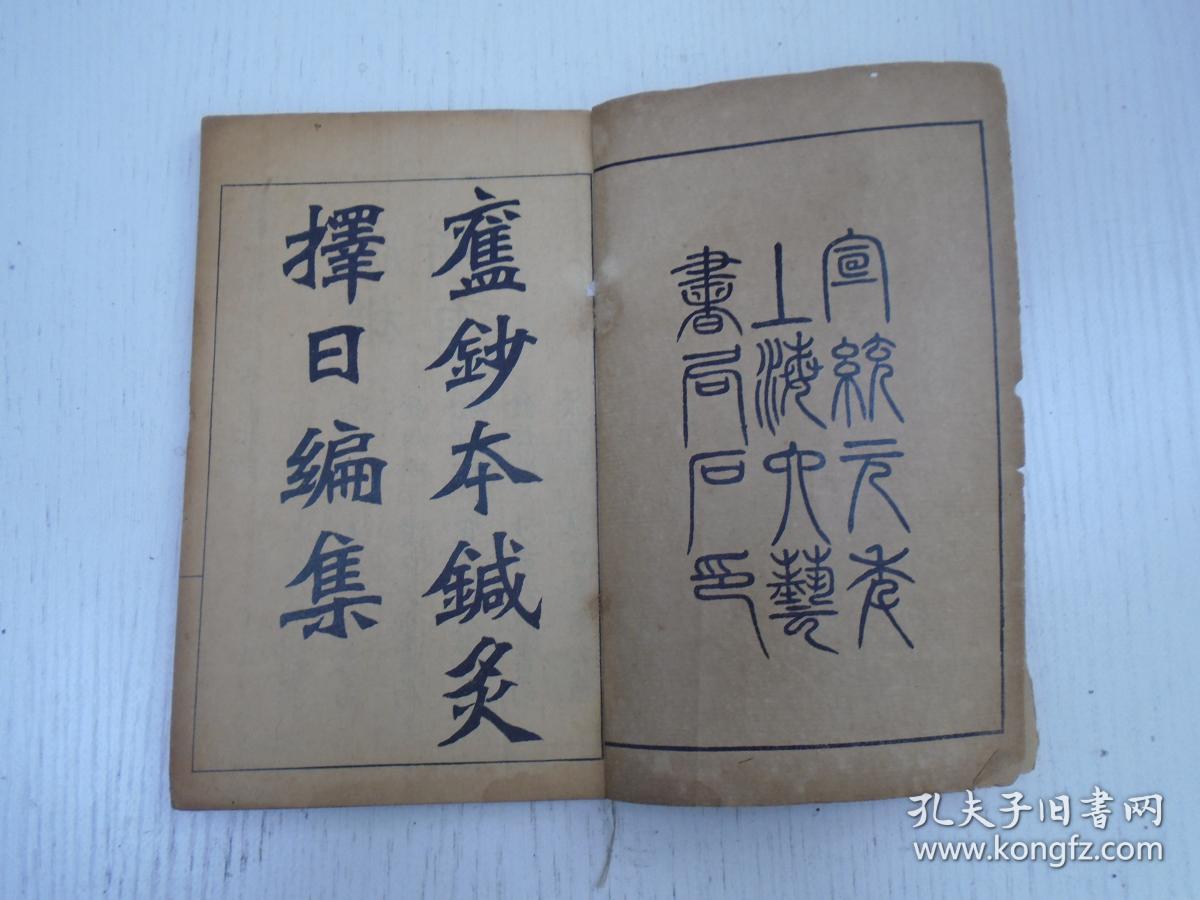 宣統元年
上海六藝
書局石印
舊鈔本鍼灸
擇日編集
孔夫子旧书网
www.kongfz.com